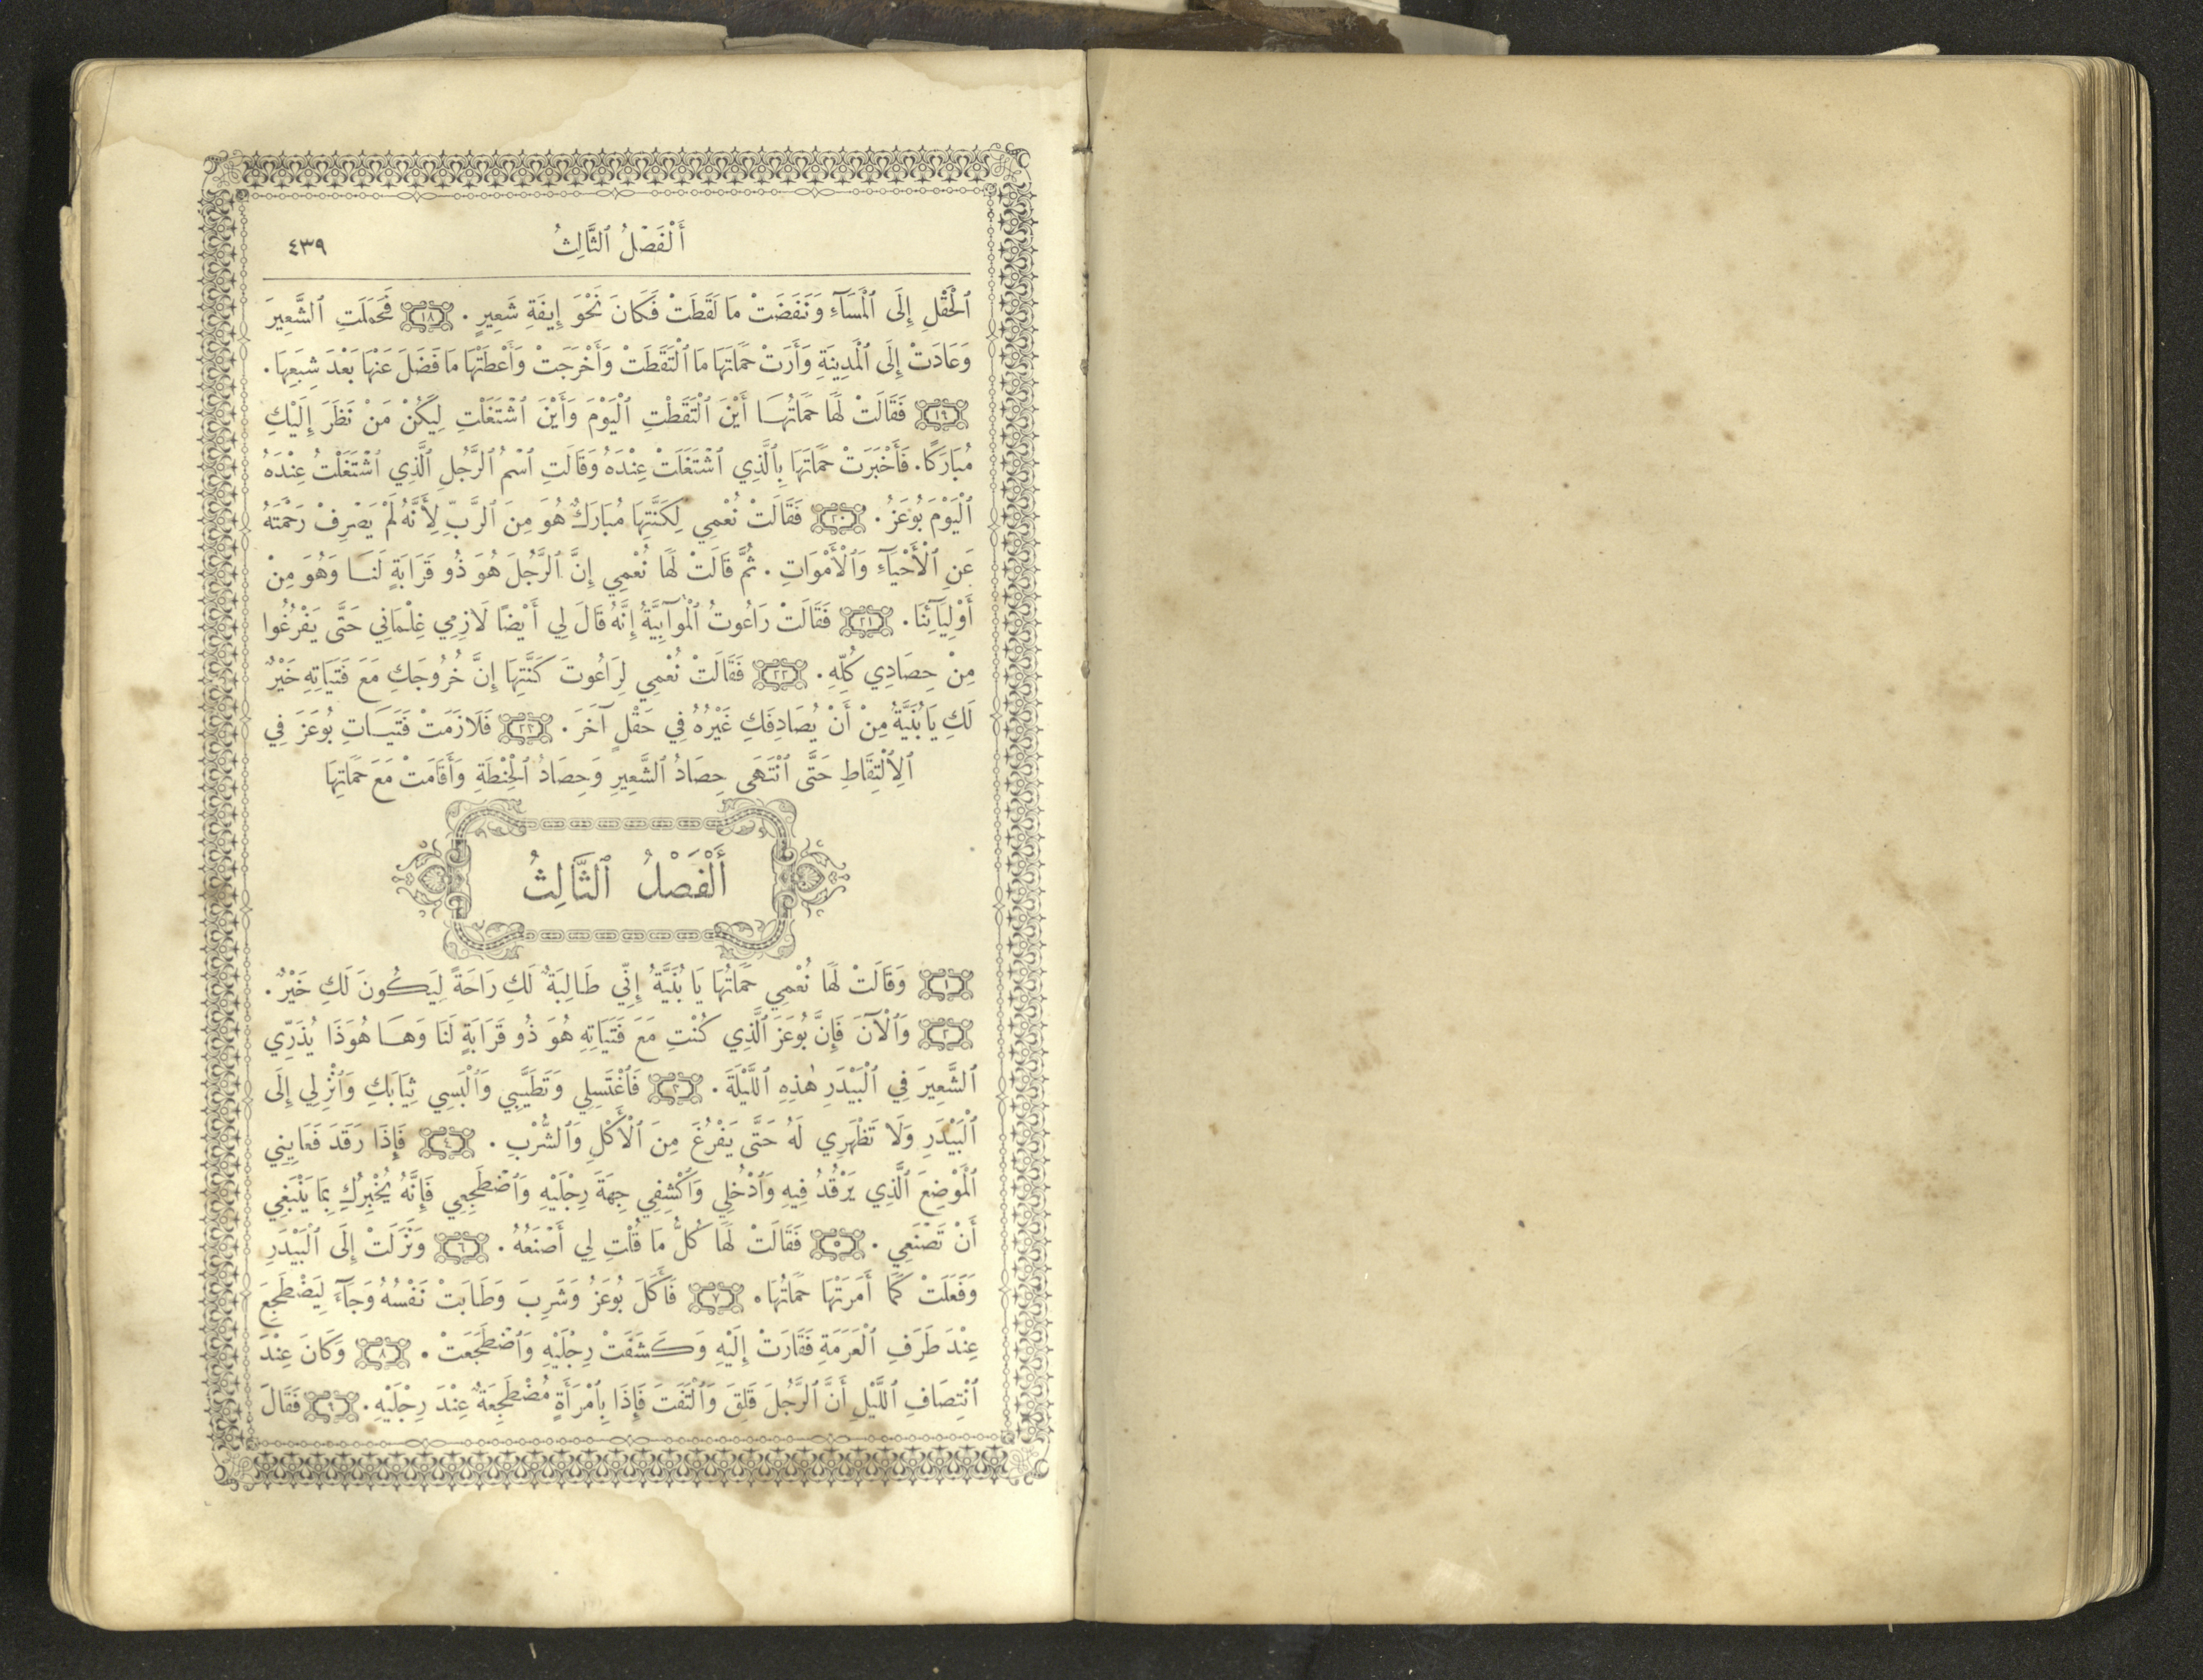 أَلْفَصْلُ ٱلثَّالِثُ ٤٣٩
ٱلْحَقْلِ إِلَى ٱلْمَسَآءِ وَنَفَضَتْ مَا لَقَطَتْ فَكَانَ نَحْوَ إِيفَةِ شَعِيرٍ . ١٨ فَحَمَلَتِ ٱلشَّعِيرَ
وَعَادَتْ إِلَى ٱلْمَدِينَةِ وَأَرَتْ حَمَاتَهَا مَا ٱلْتَقَطَتْ وَأَخْرَجَتْ وَأَعْطَتْهَا مَا فَضَلَ عَنْهَا بَعْدَ شِبَعِهَا .
١٩ فَقَالَتْ لَهَا حَمَاتُهَا أَيْنَ ٱلْتَقَطْتِ ٱلْيَوْمَ وَأَيْنَ ٱشْتَغَلْتِ لِيَكُنْ مَنْ نَظَرَ إِلَيْكِ
مُبَارَكًا . فَأَخْبَرَتْ حَمَاتَهَا بِٱلَّذِي ٱشْتَغَلَتْ عِنْدَهُ وَقَالَتِ ٱسْمُ ٱلرَّجُلِ ٱلَّذِي ٱشْتَغَلْتُ عِنْدَهُ
ٱلْيَوْمَ بُوعَزُ . ٢٠ فَقَالَتْ نُعْمِي لِكَنَّتِهَا مُبَارَكٌ هُوَ مِنَ ٱلرَّبِّ لِأَنَّهُ لَمْ يَصْرِفْ رَحْمَتَهُ
عَنِ ٱلْأَحْيَآءِ وَٱلْأَمْوَاتِ . ثُمَّ قَالَتْ لَهَا نُعْمِي إِنَّ ٱلرَّجُلَ هُوَ ذُو قَرَابَةٍ لَنَا وَهُوَ مِنْ
أَوْلِيَآئِنَا . ٢١ فَقَالَتْ رَاعُوتُ ٱلْمُوآبِيَّةُ إِنَّهُ قَالَ لِي أَيْضًا لَازِمِي غِلْمَانِي حَتَّى يَفْرُغُوا
مِنْ حِصَادِي كُلِّهِ . ٢٢ فَقَالَتْ نُعْمِي لِرَاعُوتَ كَنَّتِهَا إِنَّ خُرُوجَكِ مَعَ فَتَيَاتِهِ خَيْرٌ
لَكِ يَا بُنَيَّةُ مِنْ أَنْ يُصَادِفَكِ غَيْرُهُ فِي حَقْلٍ آخَرَ . ٢٣ فَلَازَمَتْ فَتَيَاتِ بُوعَزَ فِي
ٱلِٱلْتِقَاطِ حَتَّى ٱنْتَهَى حِصَادُ ٱلشَّعِيرِ وَحِصَادُ ٱلْحِنْطَةِ وَأَقَامَتْ مَعَ حَمَاتِهَا
أَلْفَصْلُ ٱلثَّالِثُ
١ وَقَالَتْ لَهَا نُعْمِي حَمَاتُهَا يَا بُنَيَّةُ إِنِّي طَالِبَةٌ لَكِ رَاحَةً لِيَكُونَ لَكِ خَيْرٌ .
٢ وَٱلْآنَ فَإِنَّ بُوعَزَ ٱلَّذِي كُنْتِ مَعَ فَتَيَاتِهِ هُوَ ذُو قَرَابَةٍ لَنَا وَهَا هُوَذَا يُذَرِّي
ٱلشَّعِيرَ فِي ٱلْبَيْدَرِ هٰذِهِ ٱللَّيْلَةَ . ٣ فَٱغْتَسِلِي وَتَطَيَّبِي وَٱلْبَسِي ثِيَابَكِ وَٱنْزِلِي إِلَى
ٱلْبَيْدَرِ وَلَا تَظْهَرِي لَهُ حَتَّى يَفْرُغَ مِنَ ٱلْأَكْلِ وَٱلشُّرْبِ . ٤ فَإِذَا رَقَدَ فَعَايِنِي
ٱلْمَوْضِعَ ٱلَّذِي يَرْقُدُ فِيهِ وَٱدْخُلِي وَٱكْشِفِي جِهَةَ رِجْلَيْهِ وَٱضْطَجِعِي فَإِنَّهُ يُخْبِرُكِ بِمَا يَنْبَغِي
أَنْ تَصْنَعِي . ٥ فَقَالَتْ لَهَا كُلُّ مَا قُلْتِ لِي أَصْنَعُهُ . ٦ وَنَزَلَتْ إِلَى ٱلْبَيْدَرِ
وَفَعَلَتْ كَمَا أَمَرَتْهَا حَمَاتُهَا . ٧ فَأَكَلَ بُوعَزُ وَشَرِبَ وَطَابَتْ نَفْسُهُ وَجَآءَ لِيَضْطَجِعَ
عِنْدَ طَرَفِ ٱلْعَرَمَةِ فَقَارَتْ إِلَيْهِ وَكَشَفَتْ رِجْلَيْهِ وَٱضْطَجَعَتْ . ٨ وَكَانَ عِنْدَ
ٱنْتِصَافِ ٱللَّيْلِ أَنَّ ٱلرَّجُلَ قَلِقَ وَٱلْتَفَتَ فَإِذَا بِٱمْرَأَةٍ مُضْطَجِعَةٌ عِنْدَ رِجْلَيْهِ . ٩ فَقَالَ